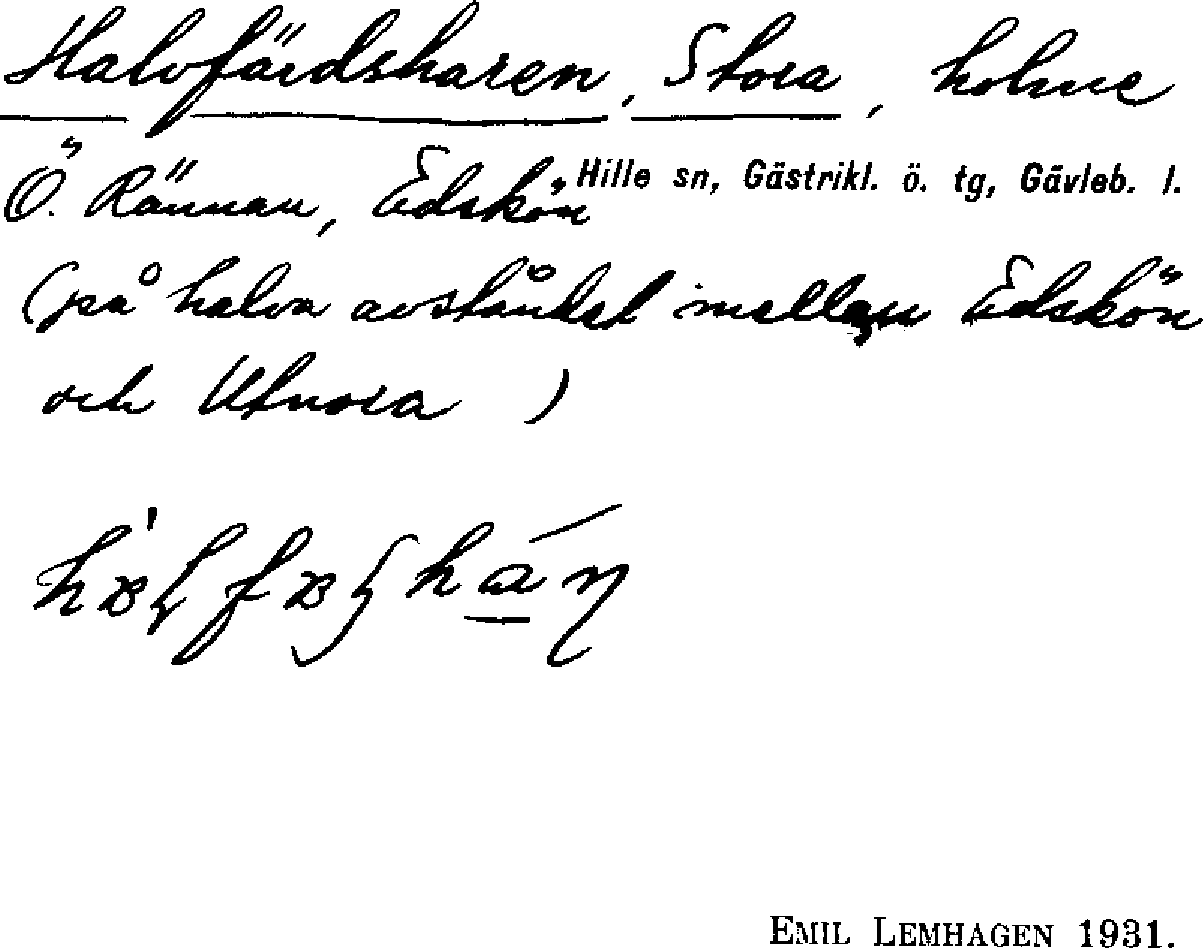 Halvfärdsharen, Stora, holme
Ö. Rännan, Edskön Hille sn, Gästrikl. ö. tg, Gävleb. l.
(på halva avståndet mellan Edskön
och Utnora)
EMIL LEMHAGEN 1931.